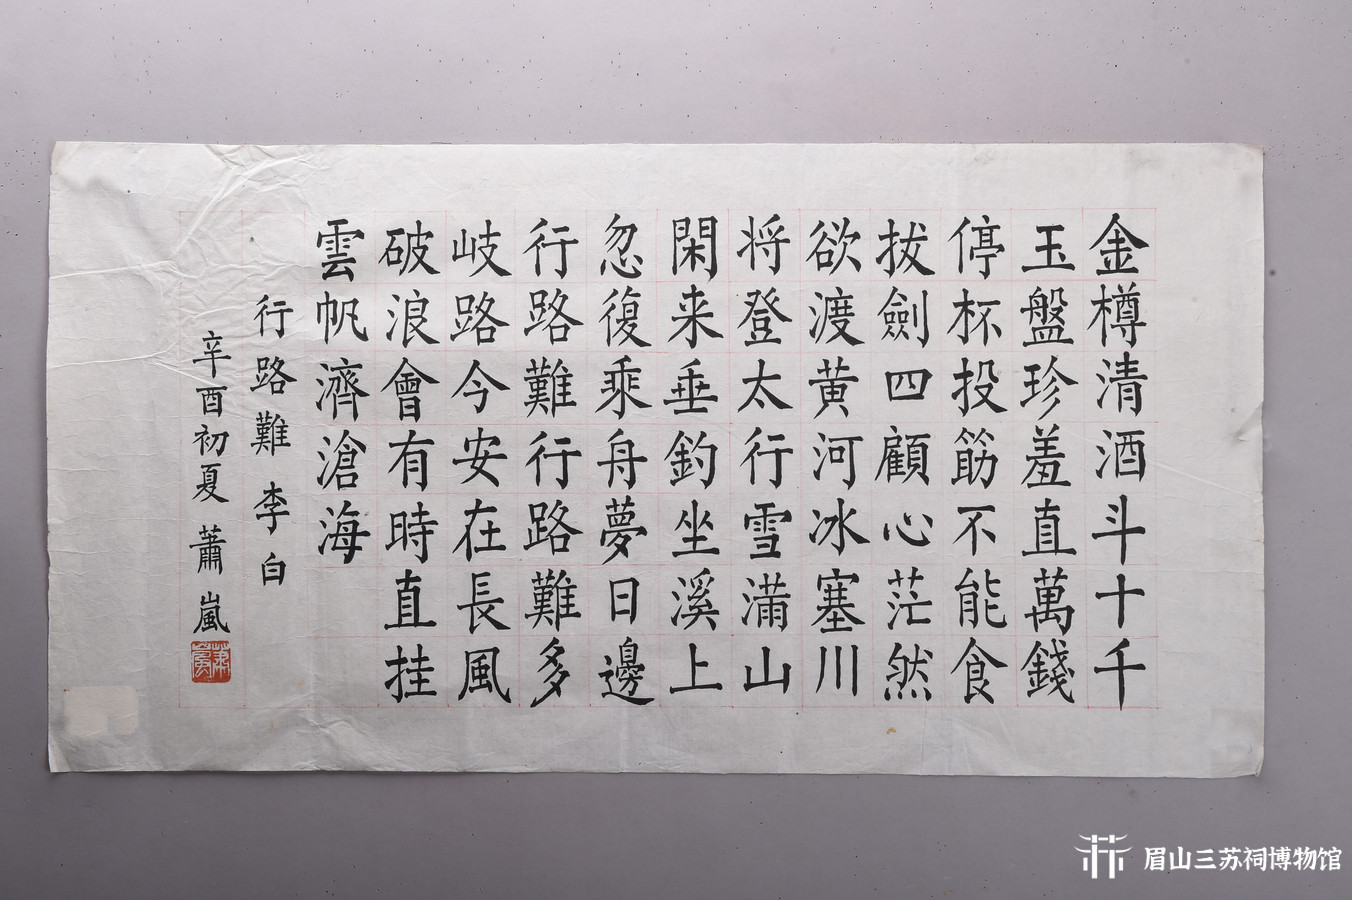 金樽清酒斗十千
玉盤珍羞直萬錢
停杯投筯不能食
拔劍四顧心茫然
欲渡黄河冰塞川
将登太行雪滿山
閑来垂釣坐溪上
忽復乘舟夢日邊
行路難行路難多
岐路今安在長風
破浪會有時直挂
雲帆濟滄海
行路難 李白
辛酉初夏 蕭嵐
眉山三苏祠博物馆